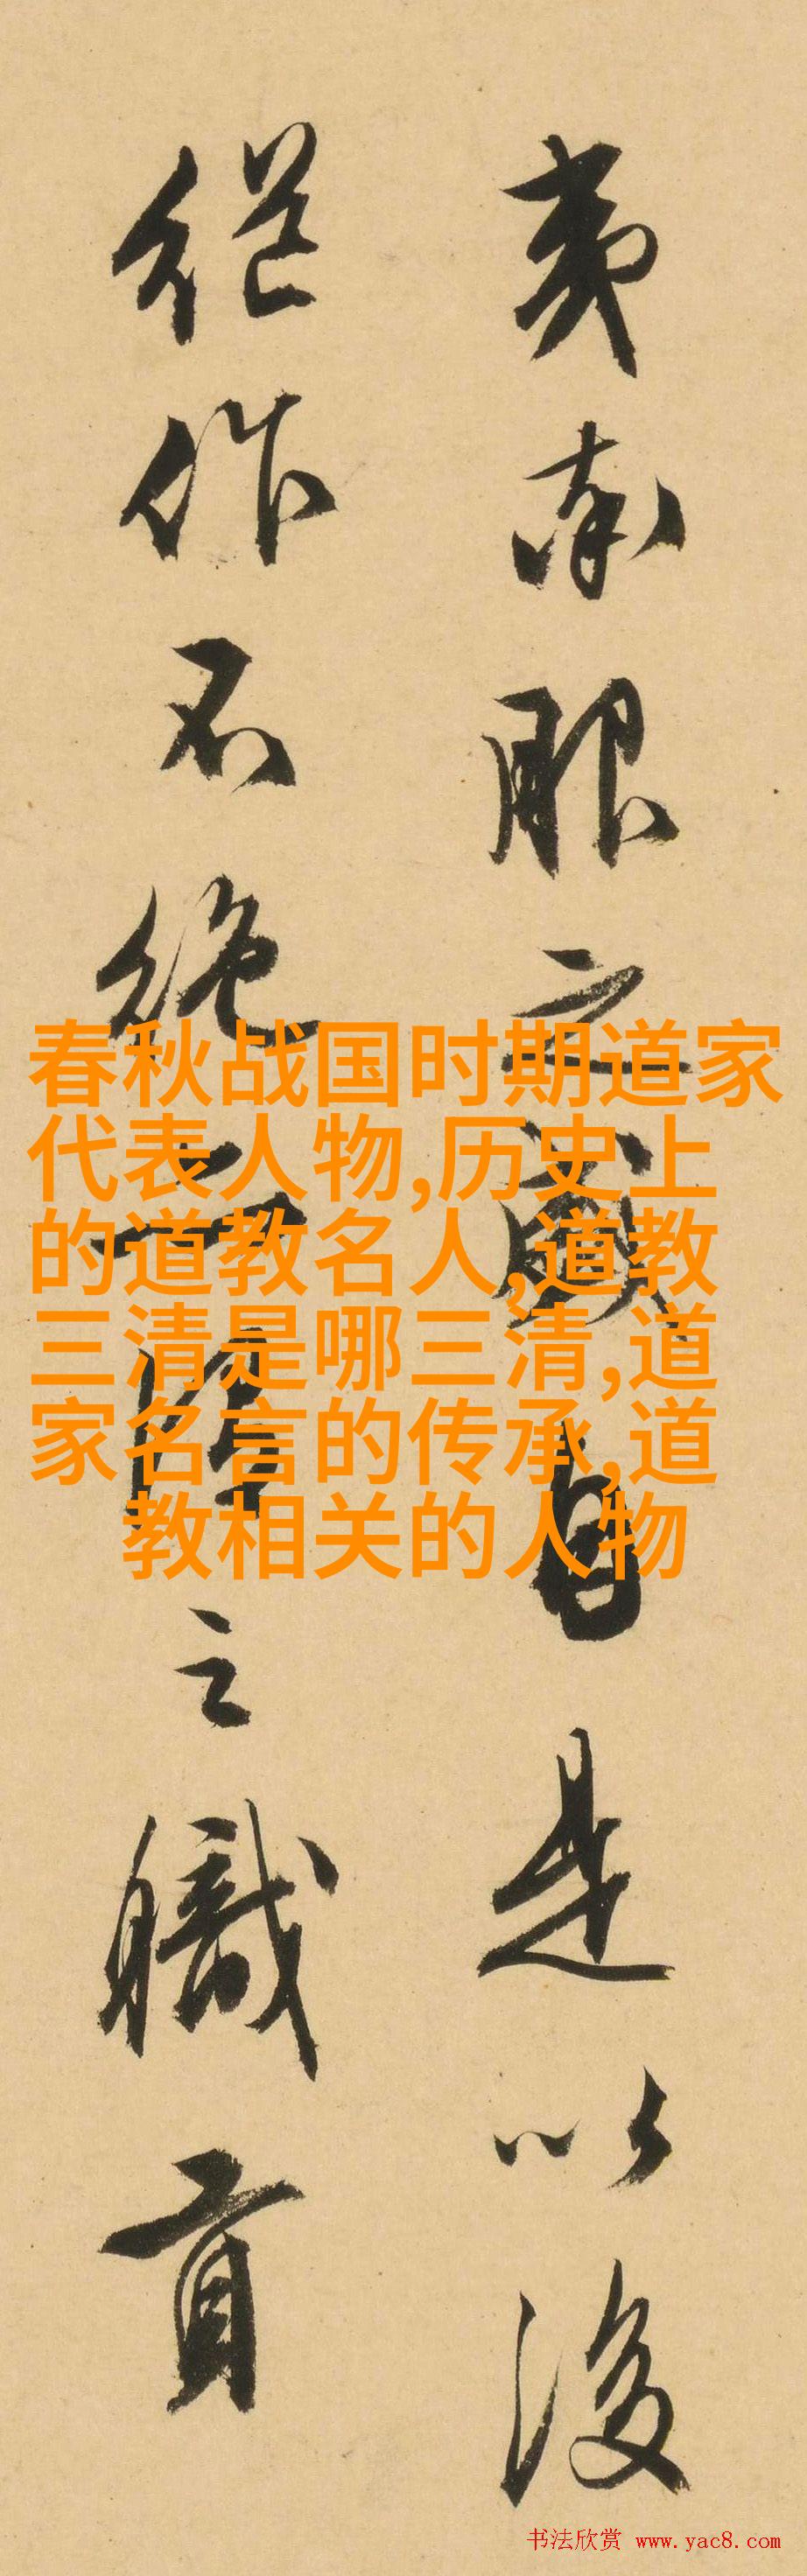 夷南服之自是以後
作不絶之職貢
春秋战国时期道家
代表人物,历史上
的道教名人,道教
三清是哪三清,道
家名言的传承,道
教相关的人物
书法欣赏 www.yac8.com